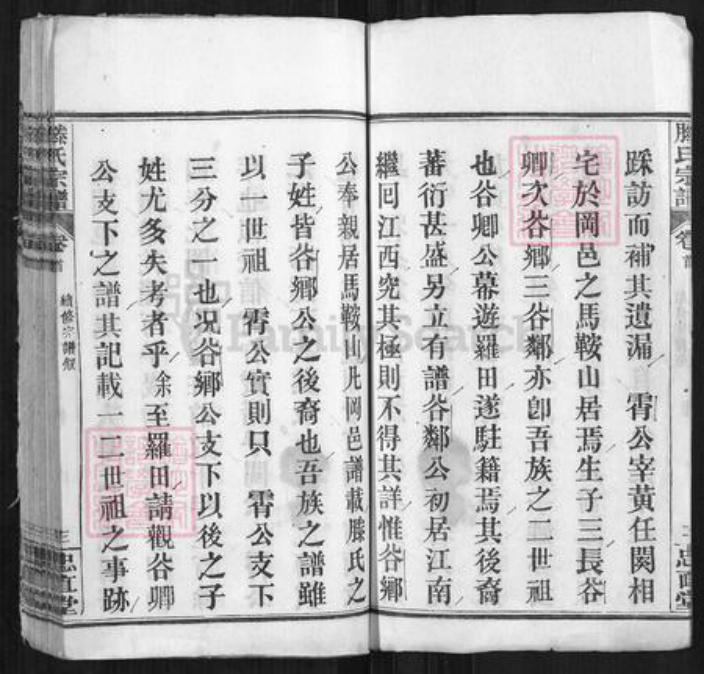 踩訪而補其遺漏 霄公宰黄任閱相
宅於岡邑之馬鞍山居焉生子三長谷
卿次谷鄉三谷鄰亦卽吾族之二世祖
也谷卿公幕遊羅田遂駐籍焉其後裔
蕃衍甚盛另立有譜谷鄰公初居江南
繼囘江西究其極則不得其詳惟谷鄉
公奉親居馬鞍山凡岡邑譜載滕氏之
子姓皆谷鄉公之後裔也吾族之譜雖
以一世祖 霄公實則只 霄公支下
三分之一也况谷鄉公支下以後之子
姓尤多失考者乎余至羅田請觀谷卿
公支下之譜其記載一二世祖之事跡
滕氏宗譜
卷首
續修宗譜敘
三
忠直堂
FamilySearch